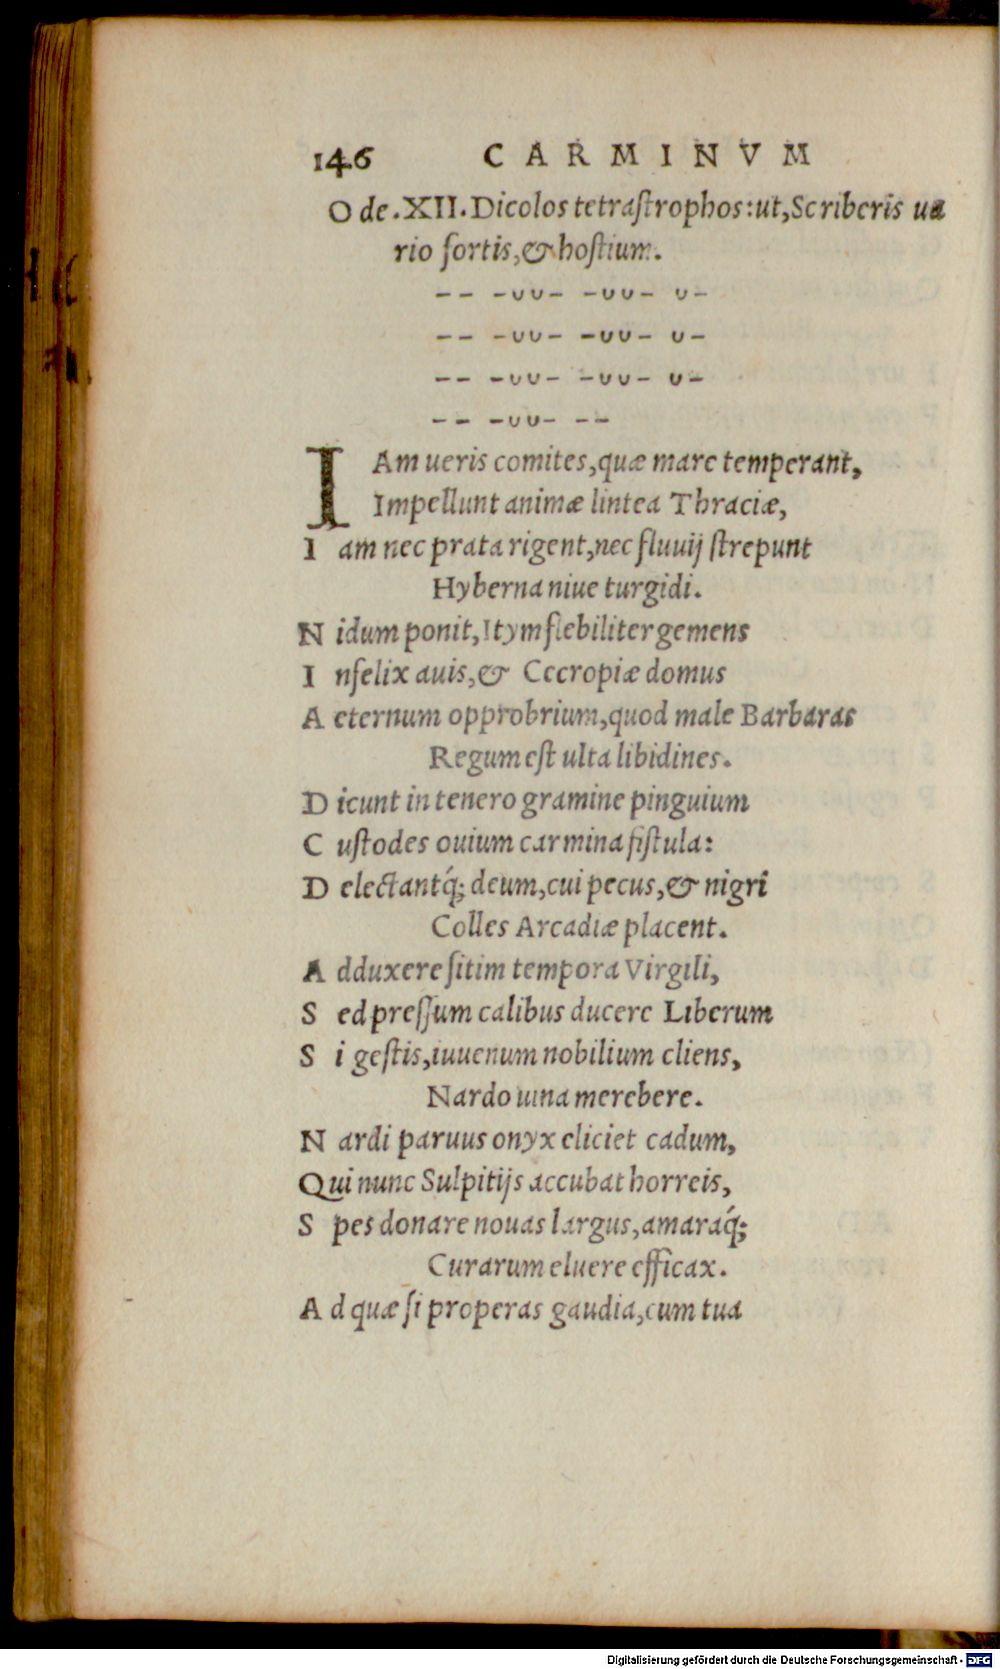 146 CARMINVM
Ode.XII.Dicolos tetraſtrophos:ut,Scriberis ua
rio fortis,& hoſtium.
-- -∪∪- -∪∪- ∪-
-- -∪∪- -∪∪- ∪-
-- -∪∪- -∪∪- ∪-
-- -∪∪- --
IAm ueris comites,quæ mare temperant,
Impellunt animæ lintea Thraciæ,
Iam nec prata rigent,nec fluuij ſtrepunt
Hyberna niue turgidi.
Nidum ponit,Itym flebiliter gemens
Infelix auis,& Cecropiæ domus
Aeternum opprobrium,quod male Barbaras
Regum eſt ulta libidines.
Dicunt in tenero gramine pinguium
Cuſtodes ouium carmina fiſtula:
Delectantq́; deum,cui pecus,& nigri
Colles Arcadiæ placent.
Adduxere ſitim tempora Virgili,
Sed preſſum calibus ducere Liberum
Si geſtis,iuuenum nobilium cliens,
Nardo uina merebere.
Nardi paruus onyx eliciet cadum,
Qui nunc Sulpitijs accubat horreis,
Spes donare nouas largus,amaraq́;
Curarum eluere efficax.
Ad quæ ſi properas gaudia,cum tua
Digitalisierung gefördert durch die Deutsche Forschungsgemeinschaft - DFG